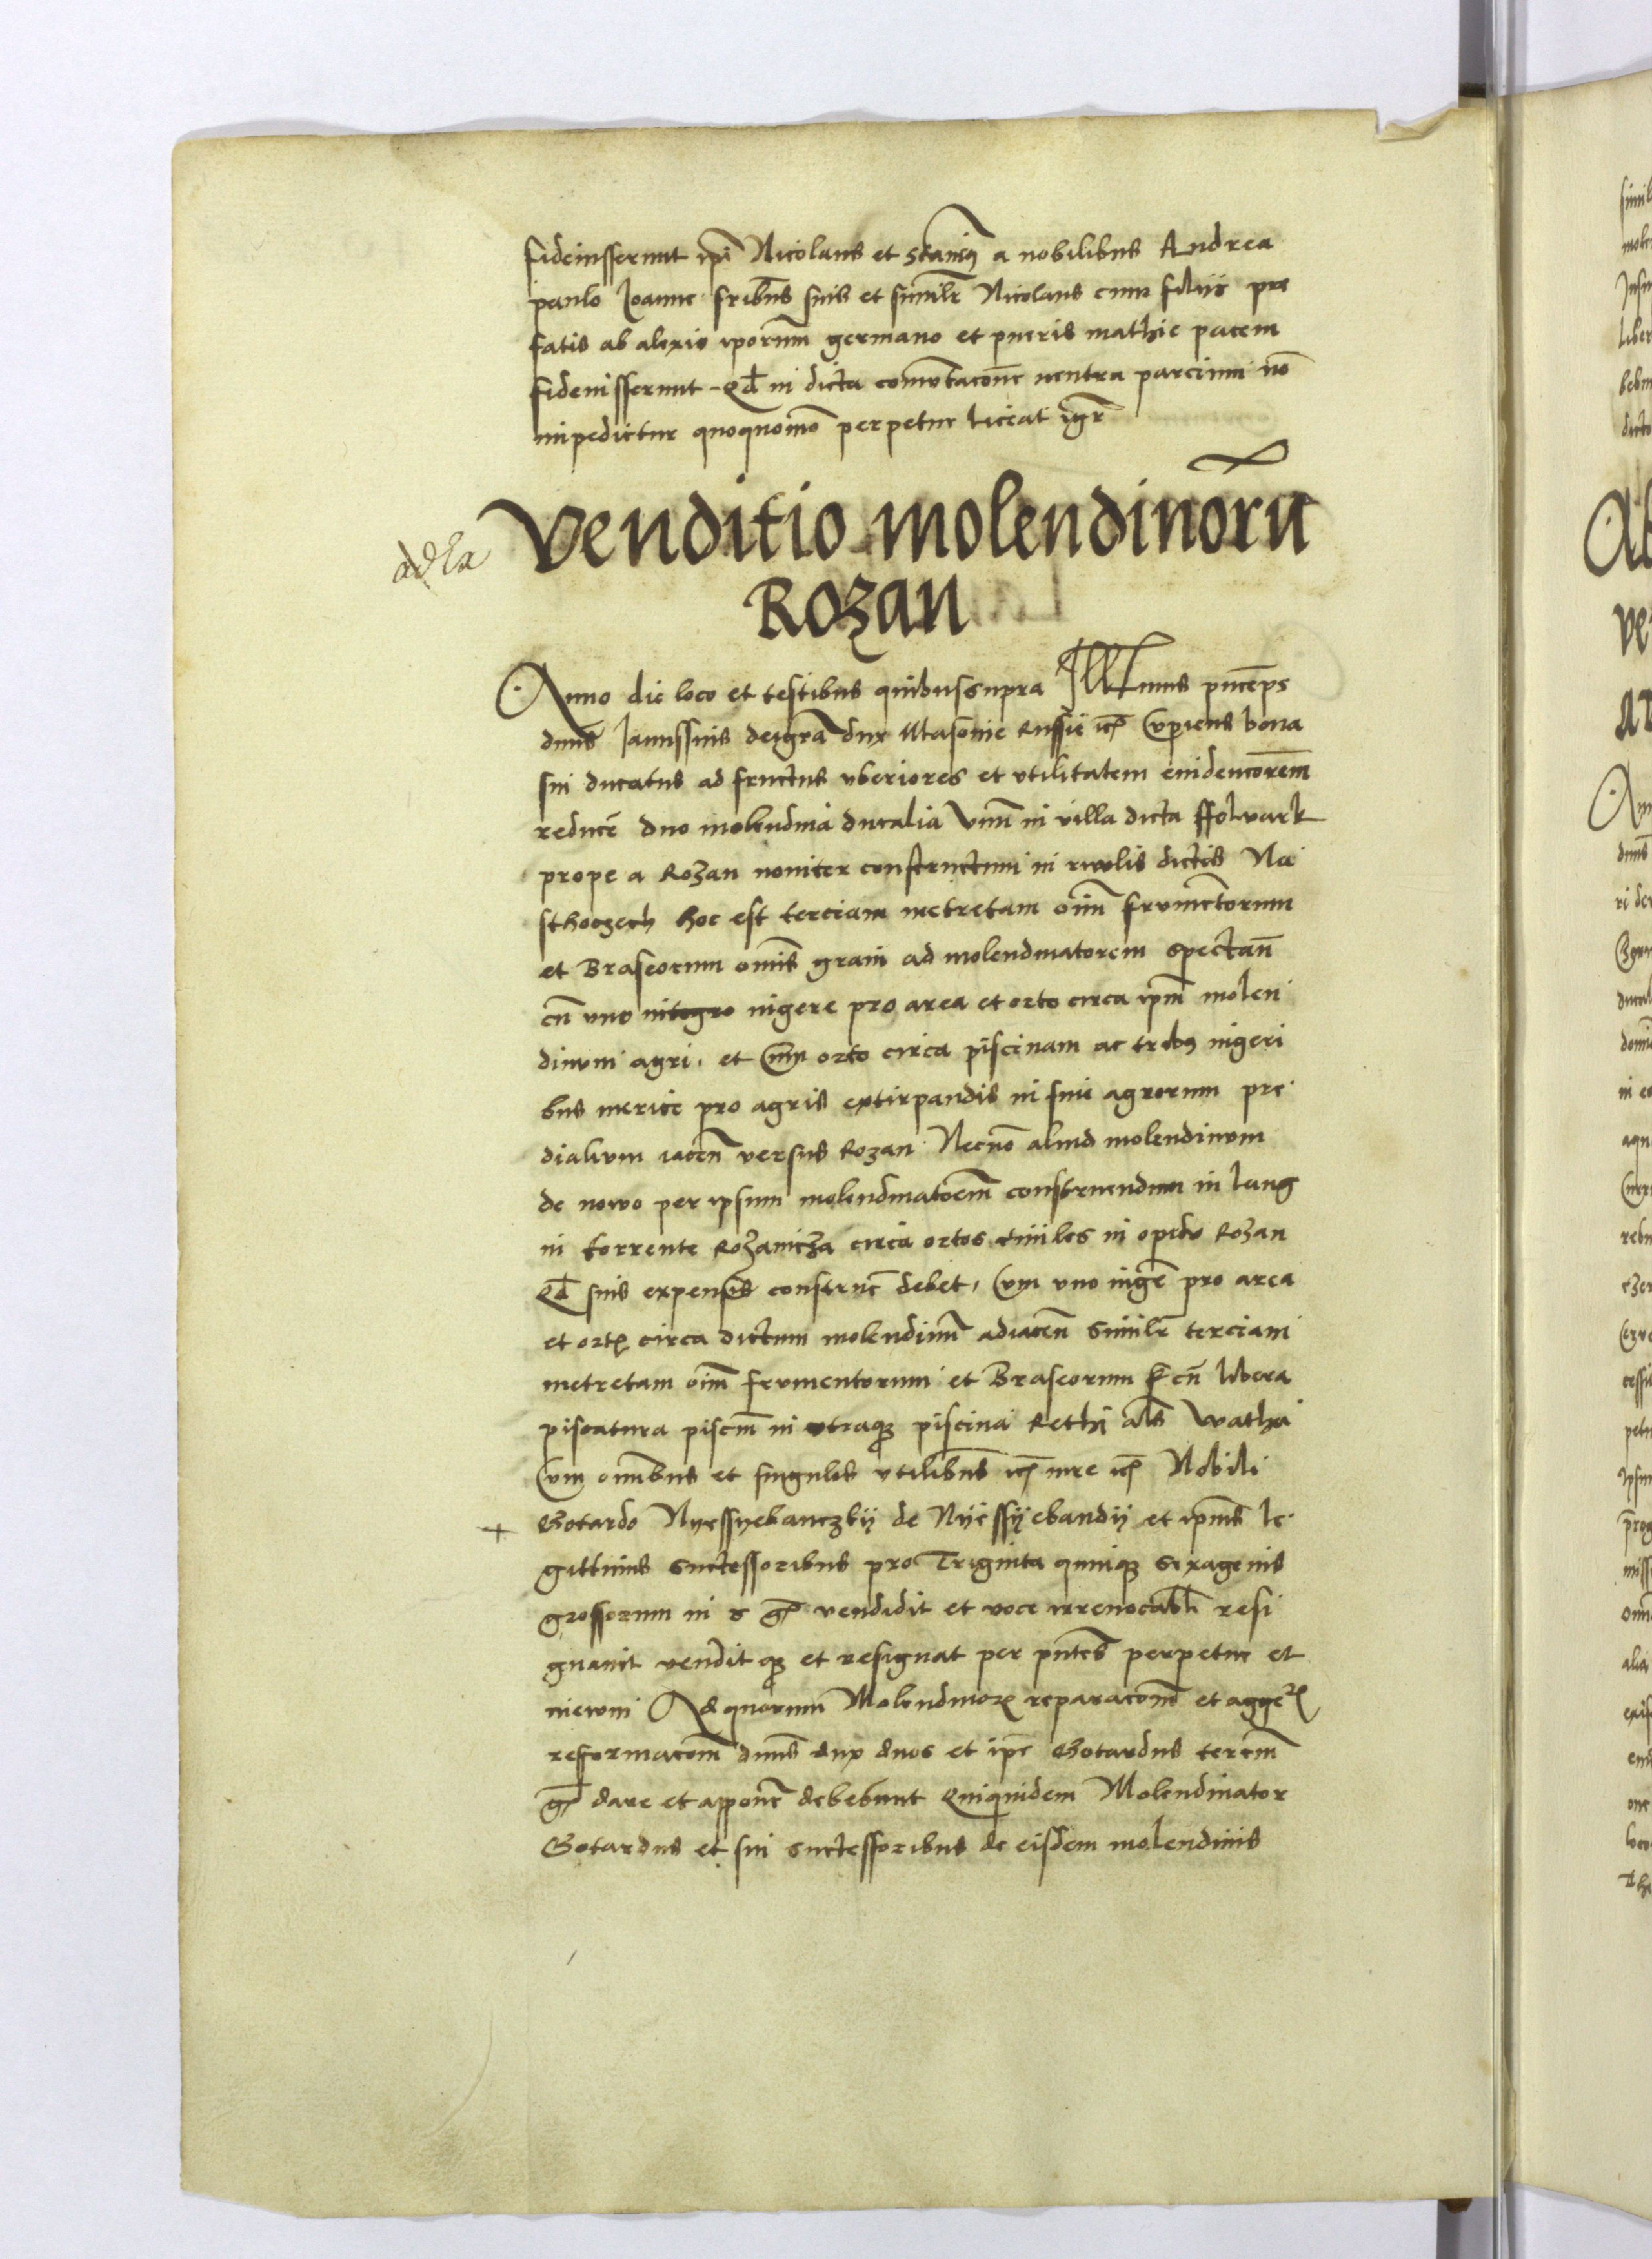 fideiusserunt ipi Nicolaus et Stanisꝰ a nobilibus Andrea
paulo Joanne fribus suis et similr Nicolaus cum filijs pre
fatis ab alexio iporum germano et pueris mathie pacem
fideiusserunt - Qd in dicta comutacone neutra parcium no
impedietur quoquomo perpetue liceat igr
ad Ra
Venditio molendinoru
Rozan
Anno die loco et testibus quibussupra Illustrimus princeps
dnus Janussius deigra dux Masouie Russie etc Cupiens bona
sui ducatus ad fructus vberiores et vtilitatem euidenciorem
reducere duo molendina ducalia Vnu in villa dicta ffolvark
prope a Rozan nouiter constructum in riwlis dictis Na
sthoczech hoc est terciam metretam oim frumentorum
et Braseorum omis grani ad molendinatorem spectan
cu uno integro iugere pro area et orto circa ipm molen
dinum agri et Cum orto circa piscinam ac tribꝰ iugeri
bus merice pro agris extirpandis in fine agrorum pre
dialium iacen versus Rozan Necno aliud molendinum
de nowo per ipsum molendinatorem construendum in lang
in torrente Rozanicza circa ortos ciuiles in opido Rozan
Qd suis expensis construe debet, Cum vno iuge pro area
et orto circa dictum molendinu adiacen Similr terciam
metretam oim frumentorum et Braseorum cu libera
piscatura pisciu in vtraqꝫ piscina Rethi als Watha
Cum omnibus et singulis vtilibus etc iure etc Nobili
+ Gotardo Nyessyebanczkij de Nijessijebandij et ipius le
gittimis Successoribus pro Triginta quinqꝫ Sexagenis
grossorum in s gr vendidit et voce irreuocabli resi
gnauit venditqꝫ et resignat per pntes perpetue et
in ewm Ad quorum Molendinorꝫ reparaconem et aggerꝫ
refformacom dnus dux duos et ipe Gotardus tercium
gr dare et apponere debebunt Quiquidem Molendinator
Gotardus et sui Successoribus de eisdem molendinis